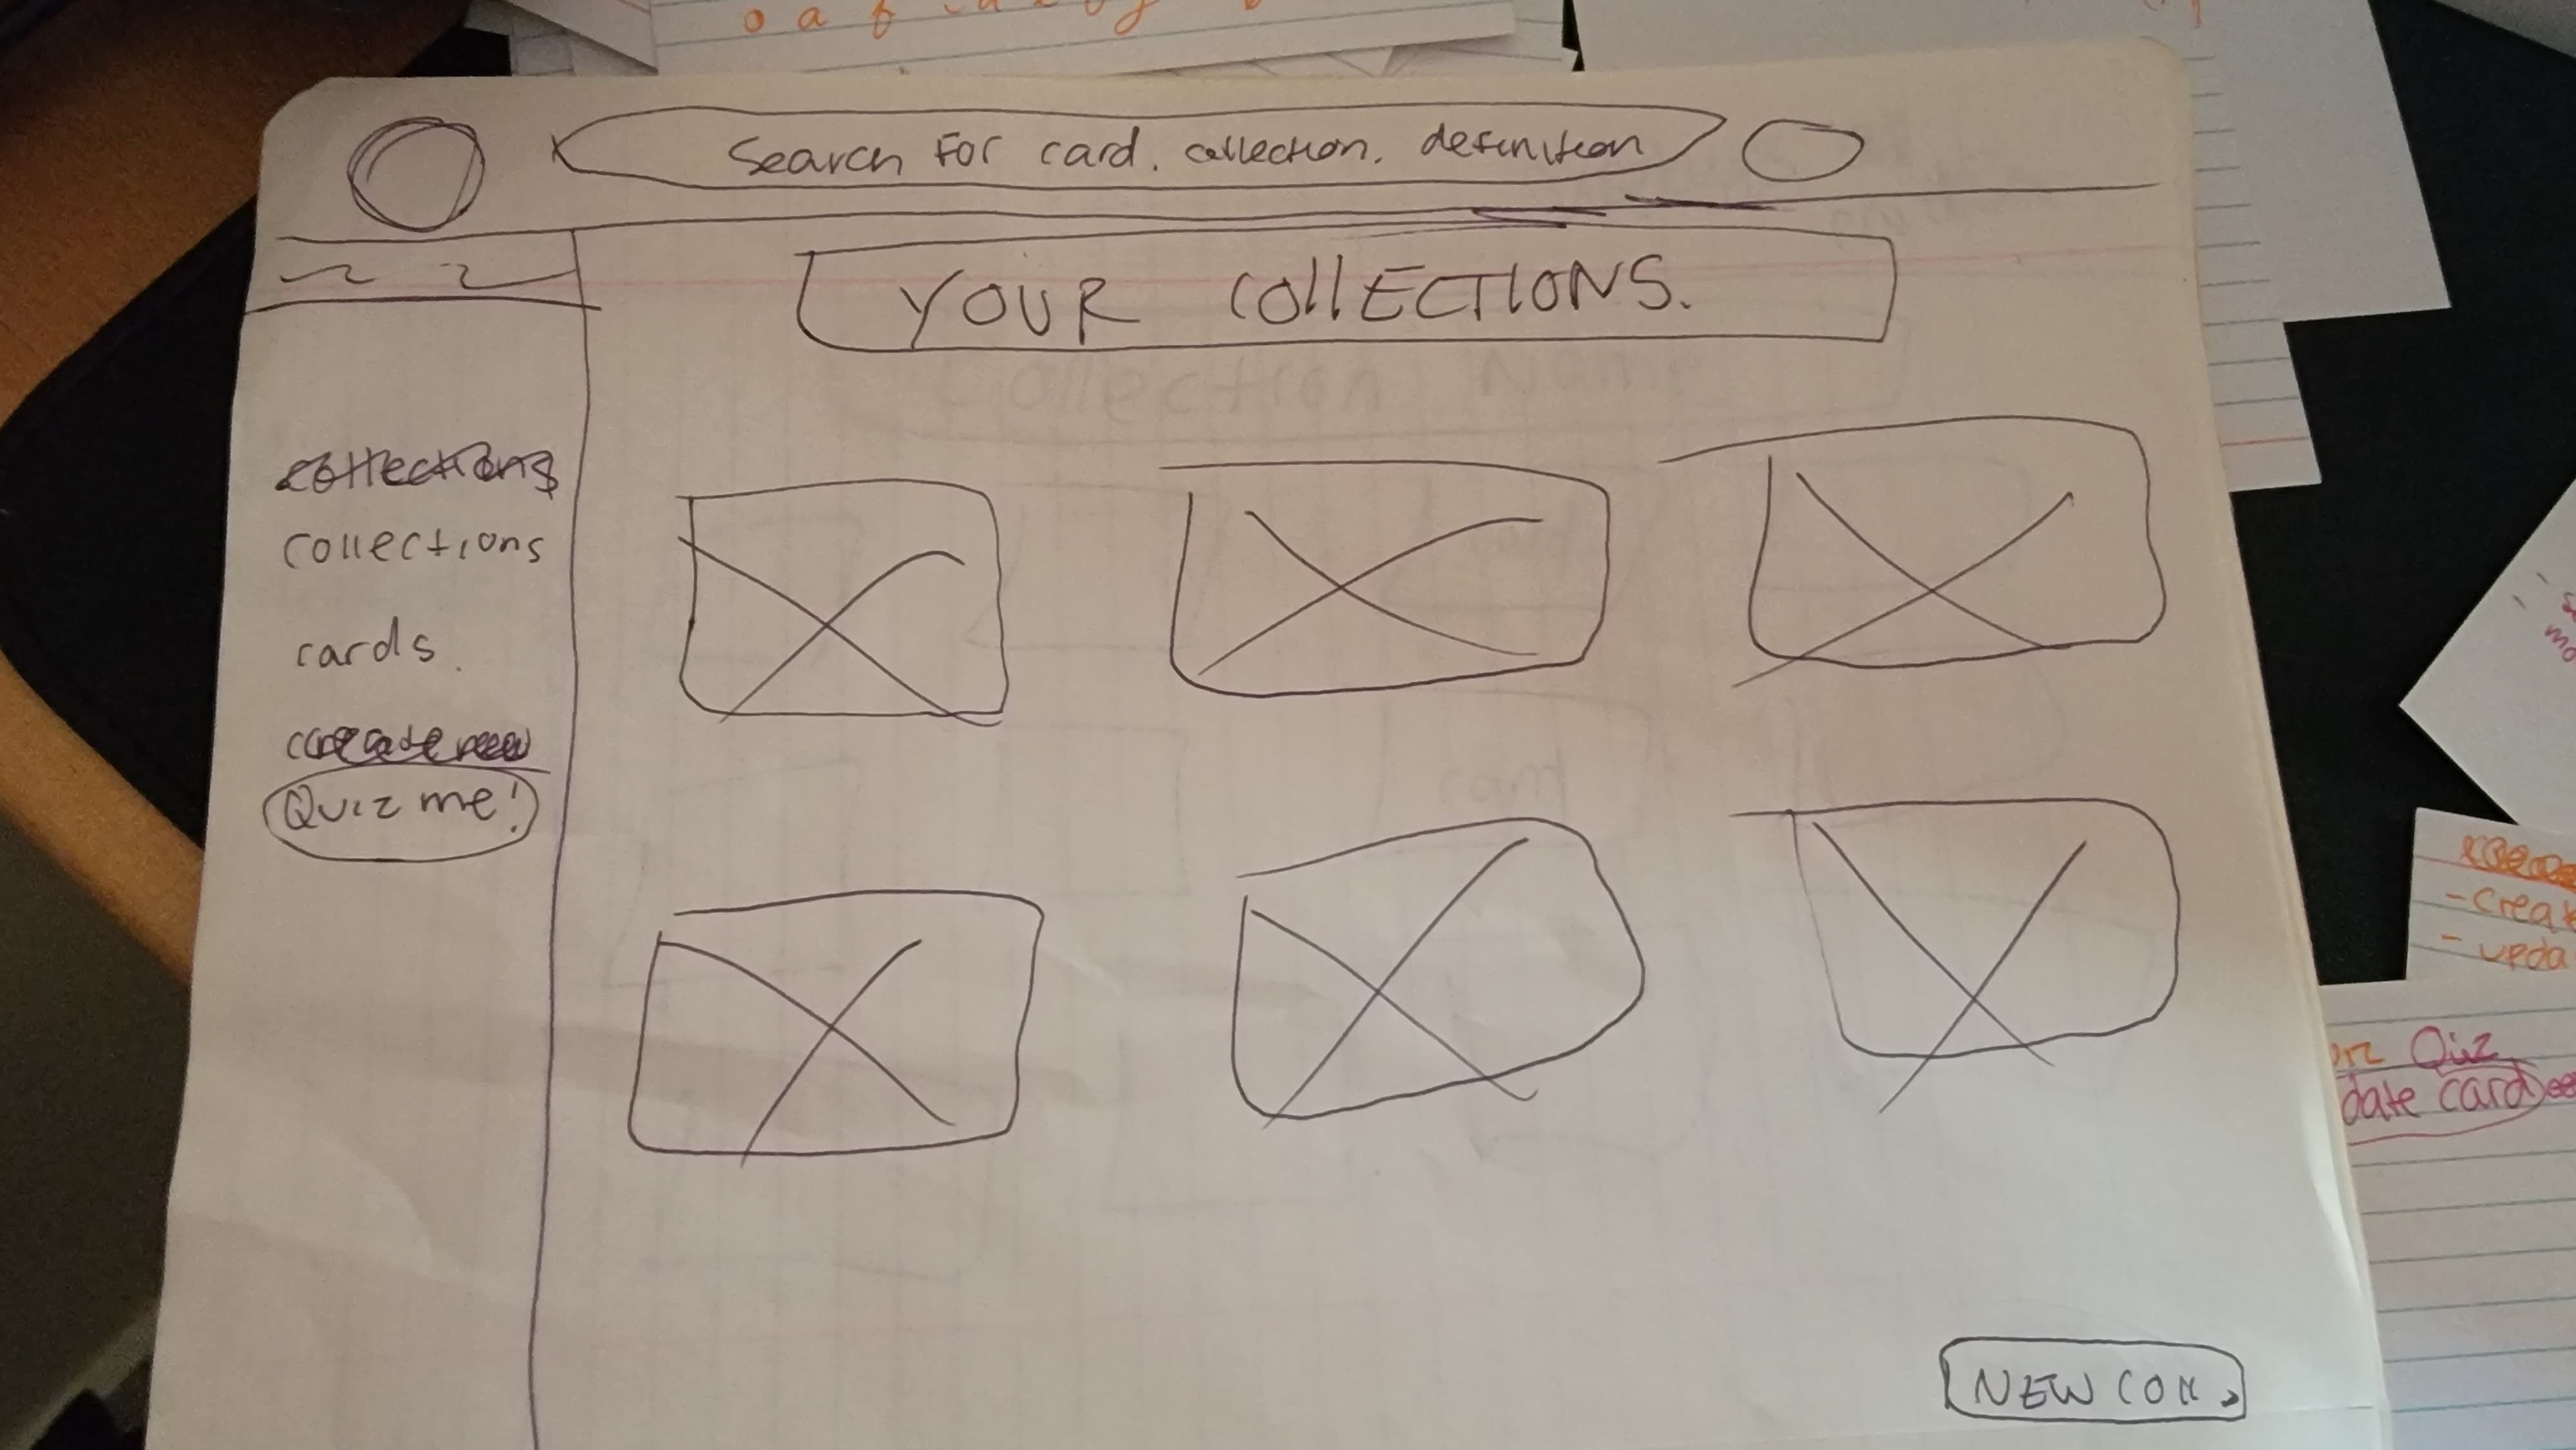 Search for card. collection. definition
YOUR COllECTIONS.
collections
collections
cards.
create new
Quiz me!
NEW COLL.
- creat
- upda
Quiz
date card